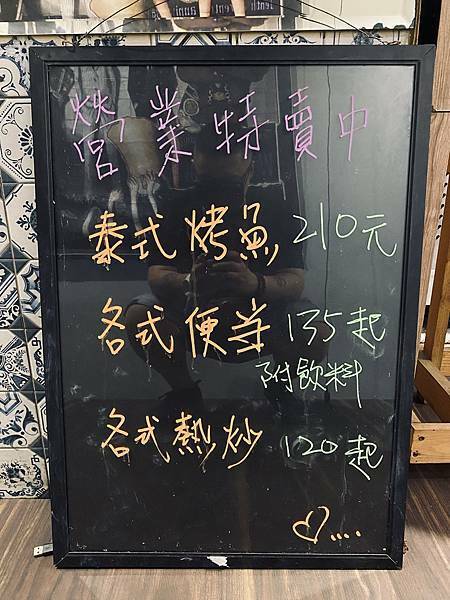 營業特賣中
泰式烤魚 210元
各式便当 135起
附飲料
各式熱炒 120起